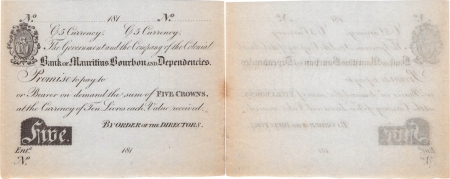 No. 181 No.
C5 Currency. C5 Currency.
The Government and the Company of the Colonial
Bank of Mauritius Bourbon and Dependencies.
Promise to pay to
or Bearer on demand the sum of Five Crowns,
at the Currency of Ten Livres each Value received.
By order of the Directors.
Five.
Entd. 181
No.